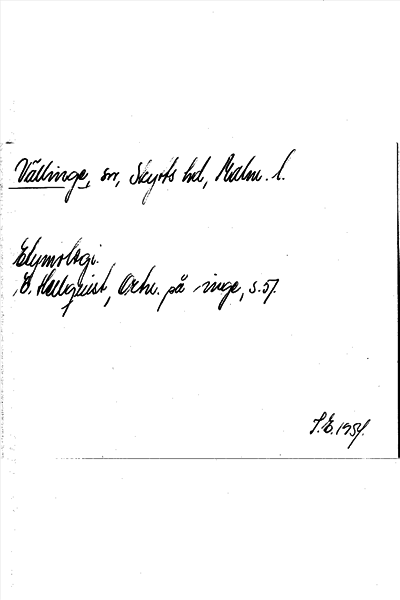 Vällinge, sn, Skytts hd, Malm. l.
Etymologi.
E. Hellquist, Ortn. på -inge, s. 57.
S.E. 1954.